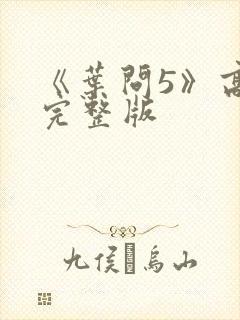 《葉問5》高
完整版
九侯烏山